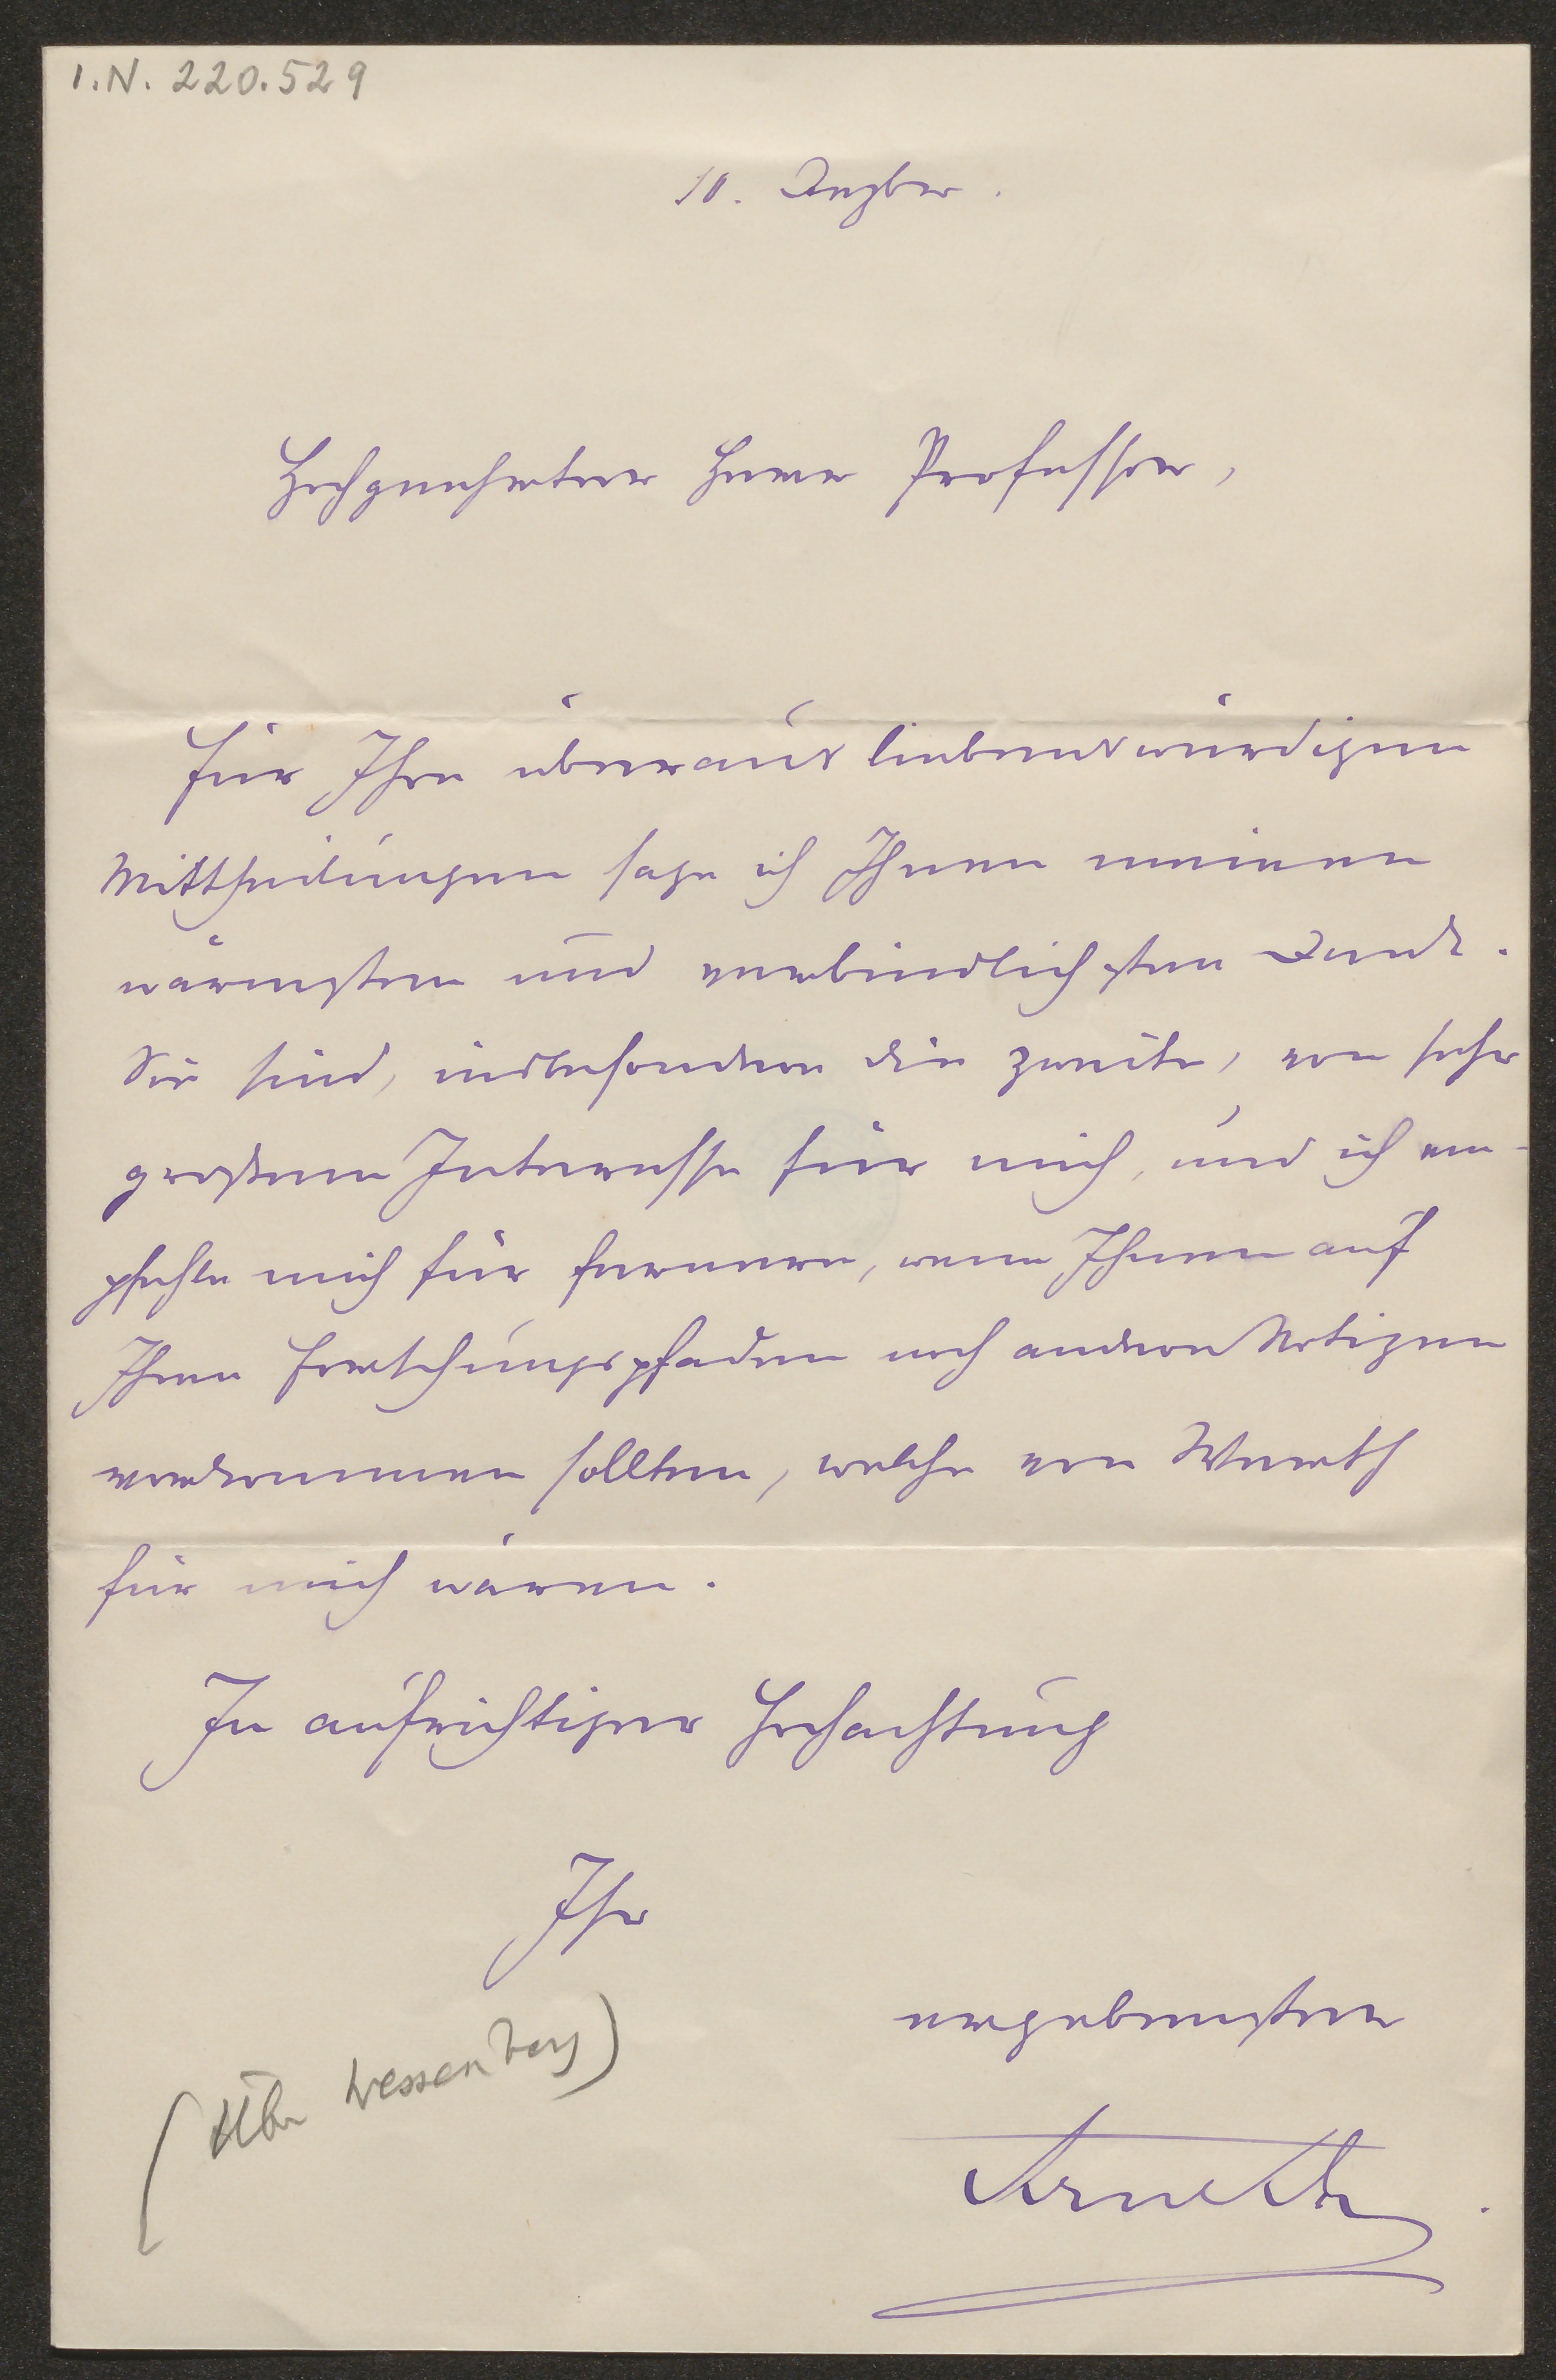 I.N. 220.529
10. Dezber.
Hochgeehrter Herr Professor,
Für Ihre überaus liebenswürdigen
Mittheilungen sage ich Ihnen meinen
wärmsten und verbindlichsten Dank.
Sie sind, insbesondere die zweite, von sehr
großem Interesse für mich, und ich em-
pfehle mich für fernere, wenn Ihnen auf
Ihren Forschungspfaden noch andere Notizen
vorkommen sollten, welche von Werth
für mich wären.
In aufrichtiger Hochachtung
Ihr
ergebenster
Arneth
(Über Wessenberg)